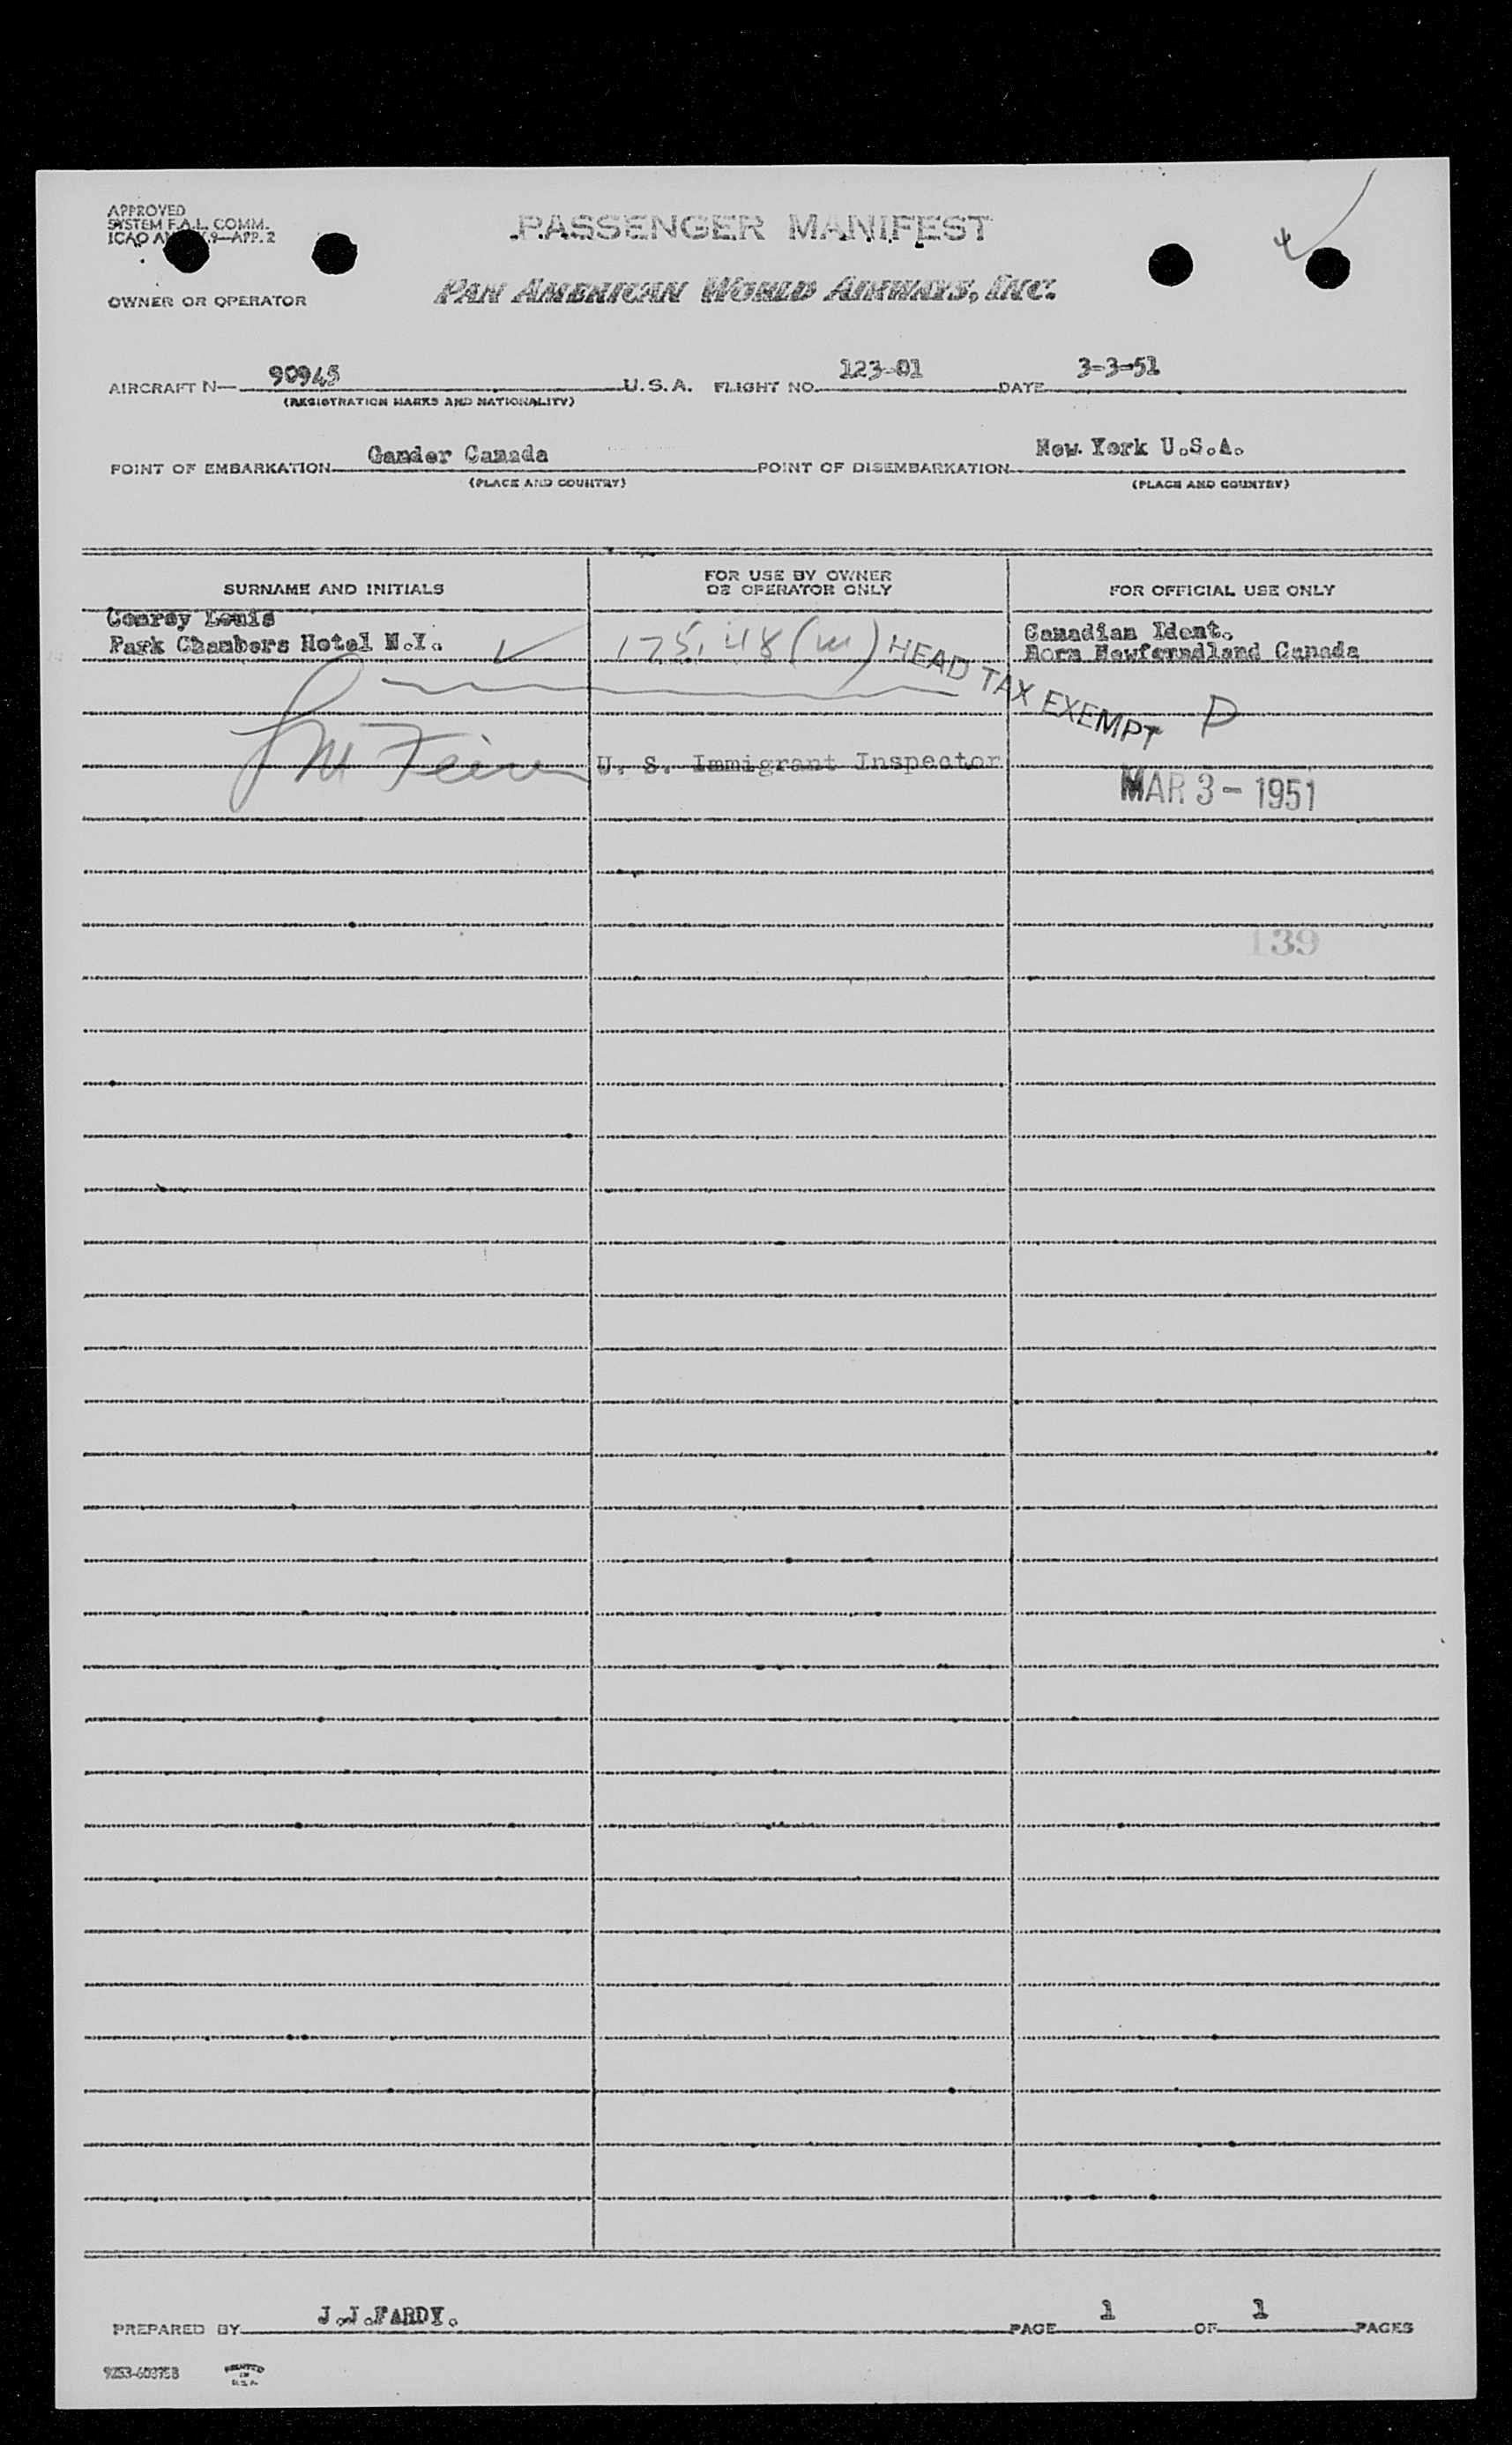 APPROVED
SYSTEM F.A.L. COMM.
ICAO 9—APP. 2
PASSENGER MANIFEST
4
OWNER OR OPERATOR
PAN AMERICAN WORLD AIRWAYS, INC.
AIRCRAFT N— 90945 U.S.A. FLIGHT NO. 123-01 DATE 3-3-51
(REGISTRATION MARKS AND NATIONALITY)
POINT OF EMBARKATION Gander Canada POINT OF DISEMBARKATION New York U.S.A.
(PLACE AND COUNTRY) (PLACE AND COUNTRY)
SURNAME AND INITIALS
FOR USE BY OWNER
OR OPERATOR ONLY
FOR OFFICIAL USE ONLY
Conroy Louis
Park Chambers Hotel N.Y.
175.48 (m)
Canadian Ident.
Born Newfoundland Canada
HEAD TAX EXEMPT P
U. S. Immigrant Inspector
MAR 3 - 1951
139
PREPARED BY J.J.FARDY. PAGE 1 OF 1 PAGES
PRINTED
IN
U.S.A.